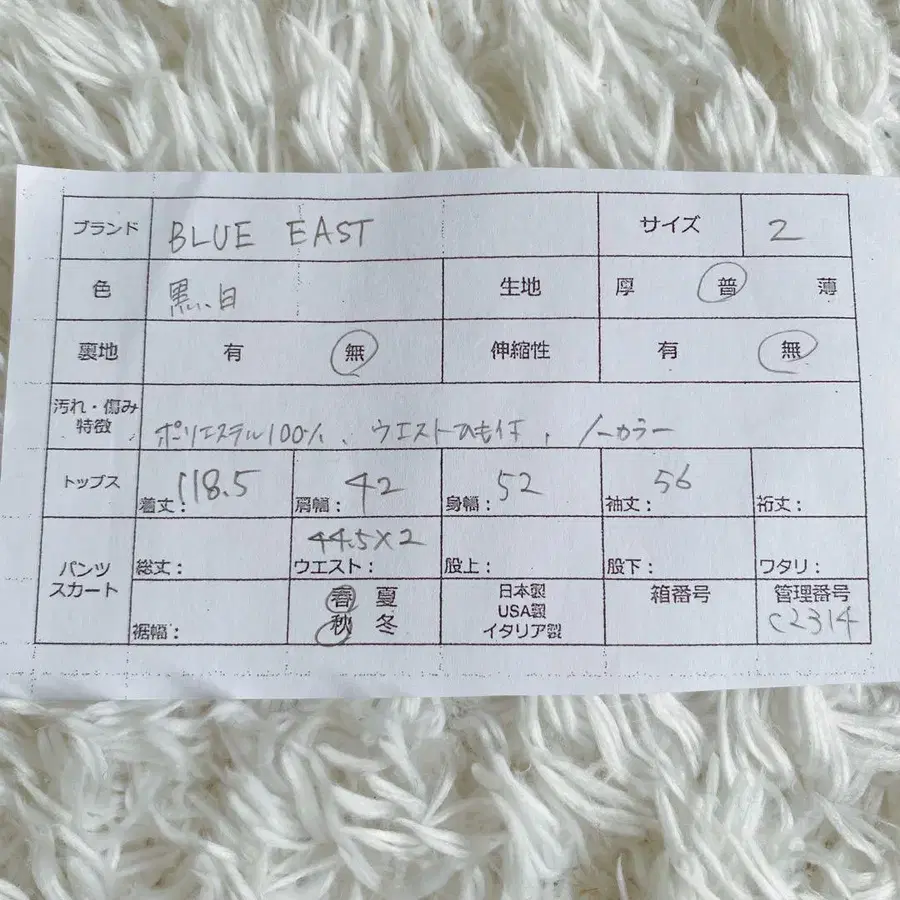 ブランド BLUE EAST サイズ 2
色 黒、白 生地 厚 普 薄
裏地 有 無 伸縮性 有 無
汚れ・傷み
特徴 ポリエステル100%、ウエストひも付、ノーカラー
トップス 着丈：118.5 肩幅：42 身幅：52 袖丈：56 裄丈：
パンツ
スカート
総丈： ウエスト：44.5×2 股上： 股下： ワタリ：
裾幅：
春 夏
秋 冬
日本製
USA製
イタリア製
箱番号
管理番号
C2314